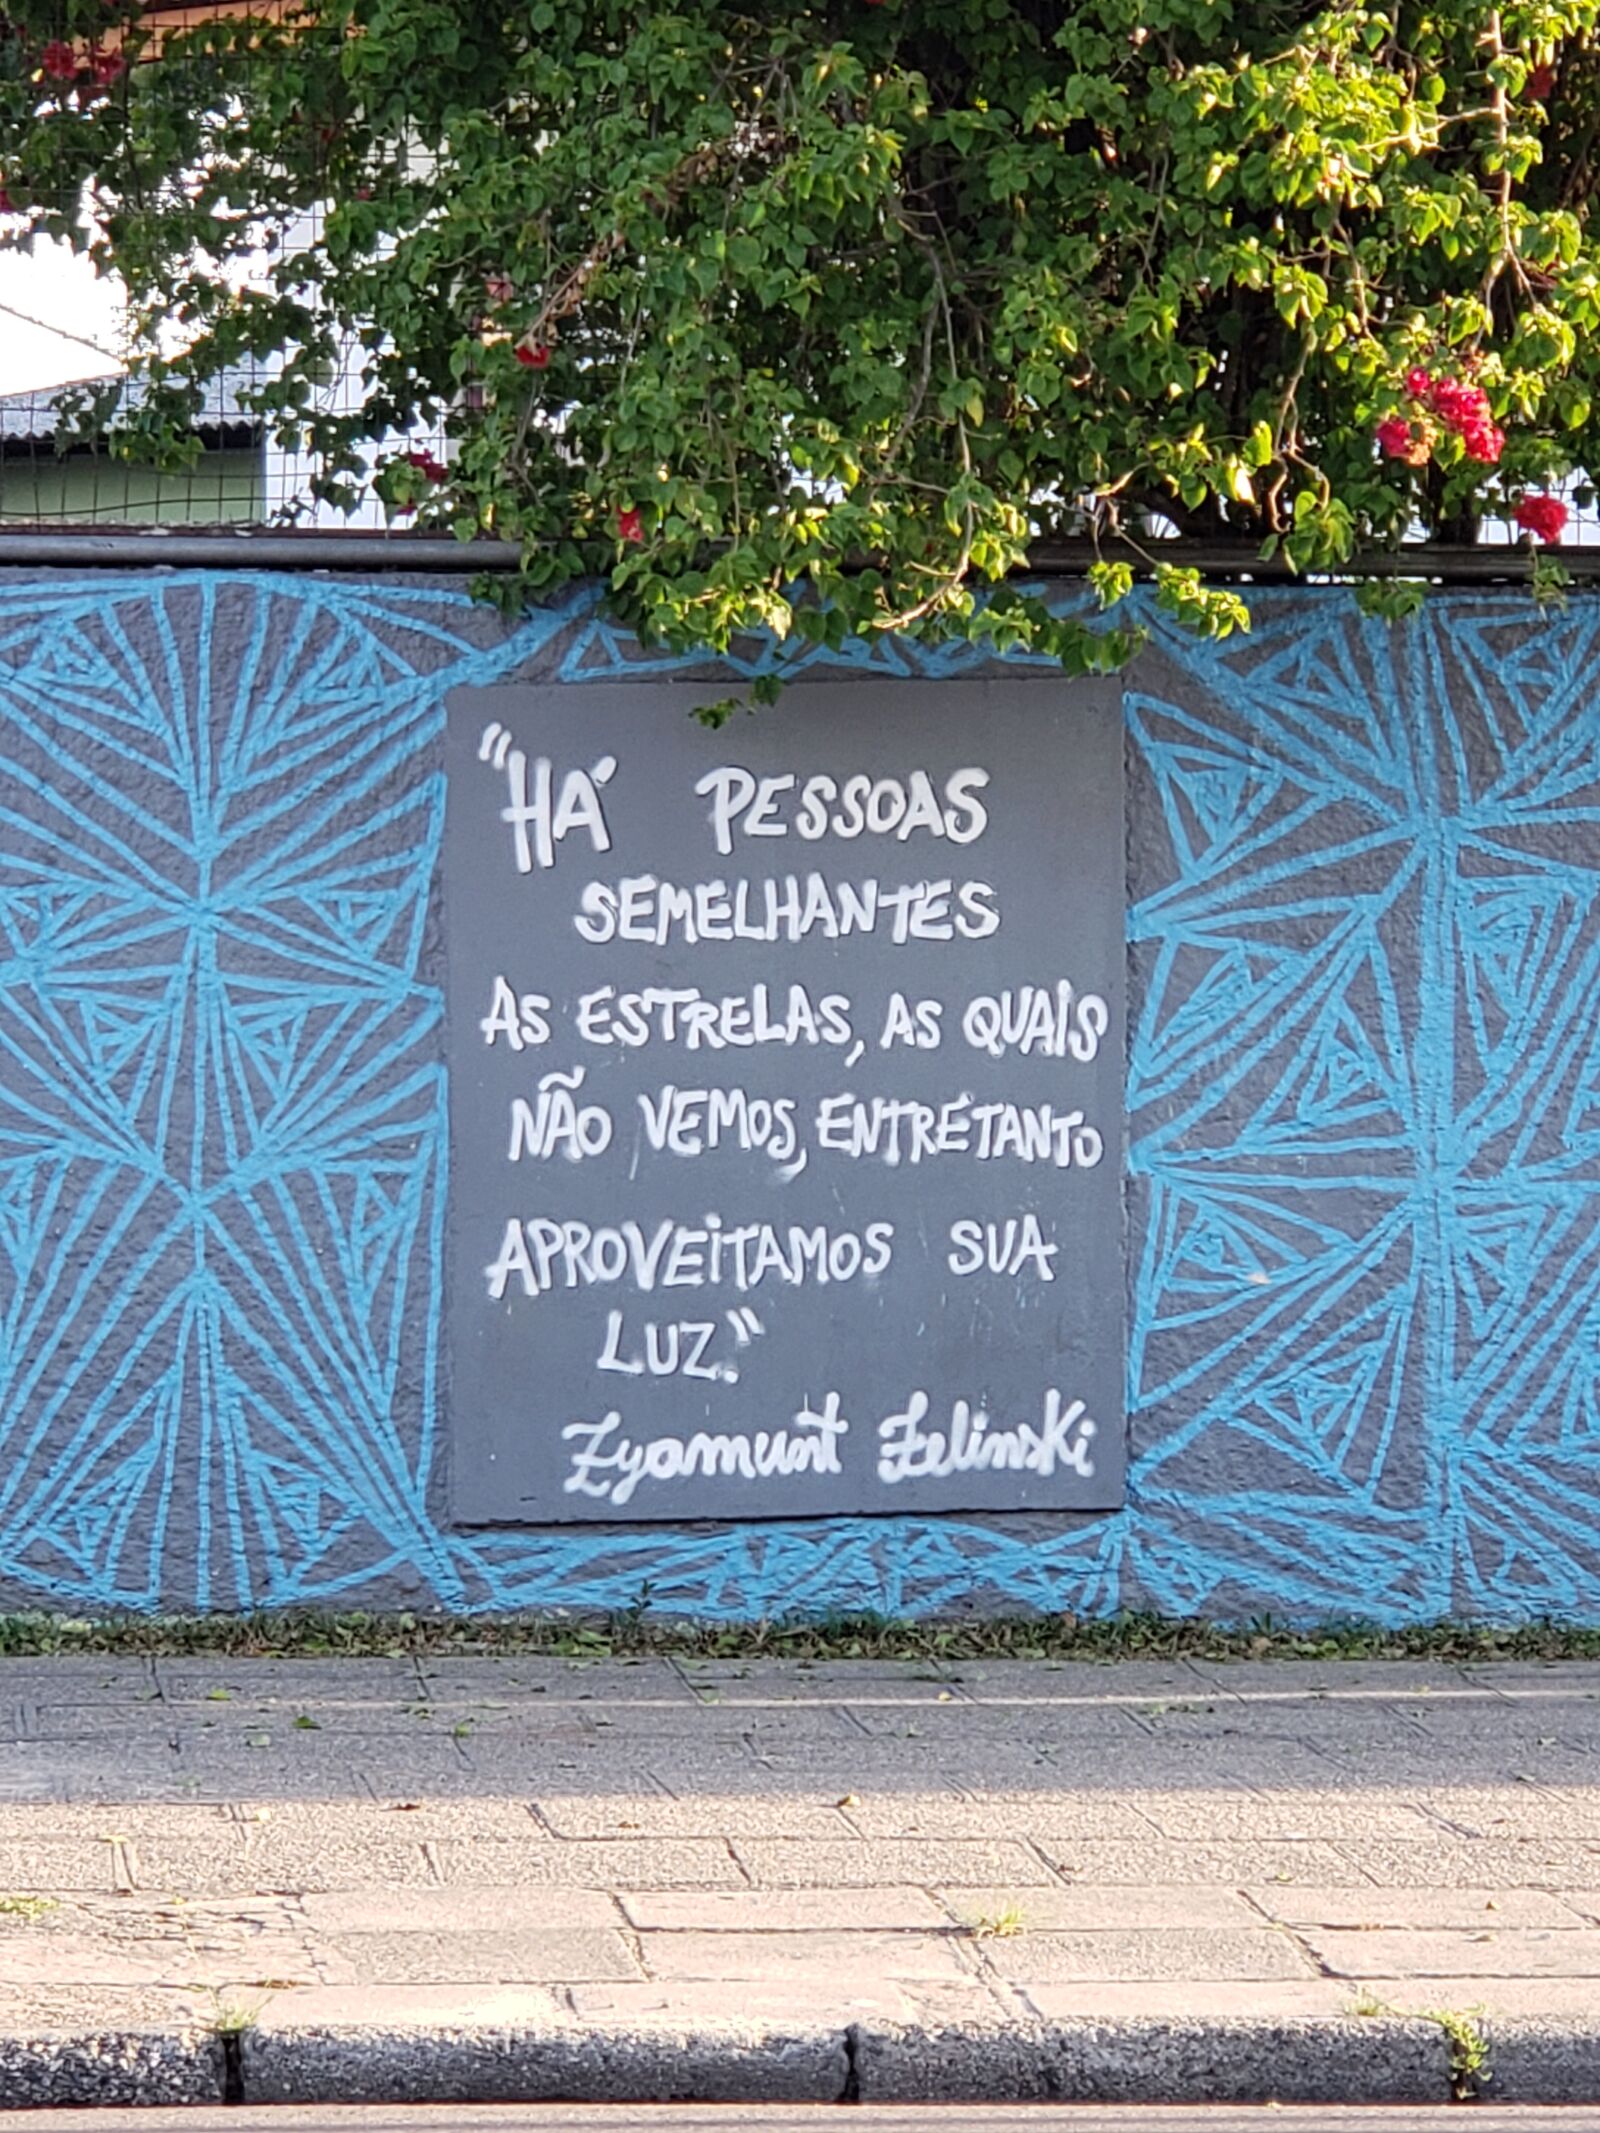 "HÁ PESSOAS
SEMELHANTES
AS ESTRELAS, AS QUAIS
NÃO VEMOS, ENTRETANTO
APROVEITAMOS SUA
LUZ."
Zygmunt Zelinski